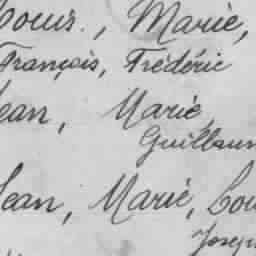 Marie,
François, Frédéric
Jean, Marie,
Guillaum
Jean, Marie, Lou
Joseph